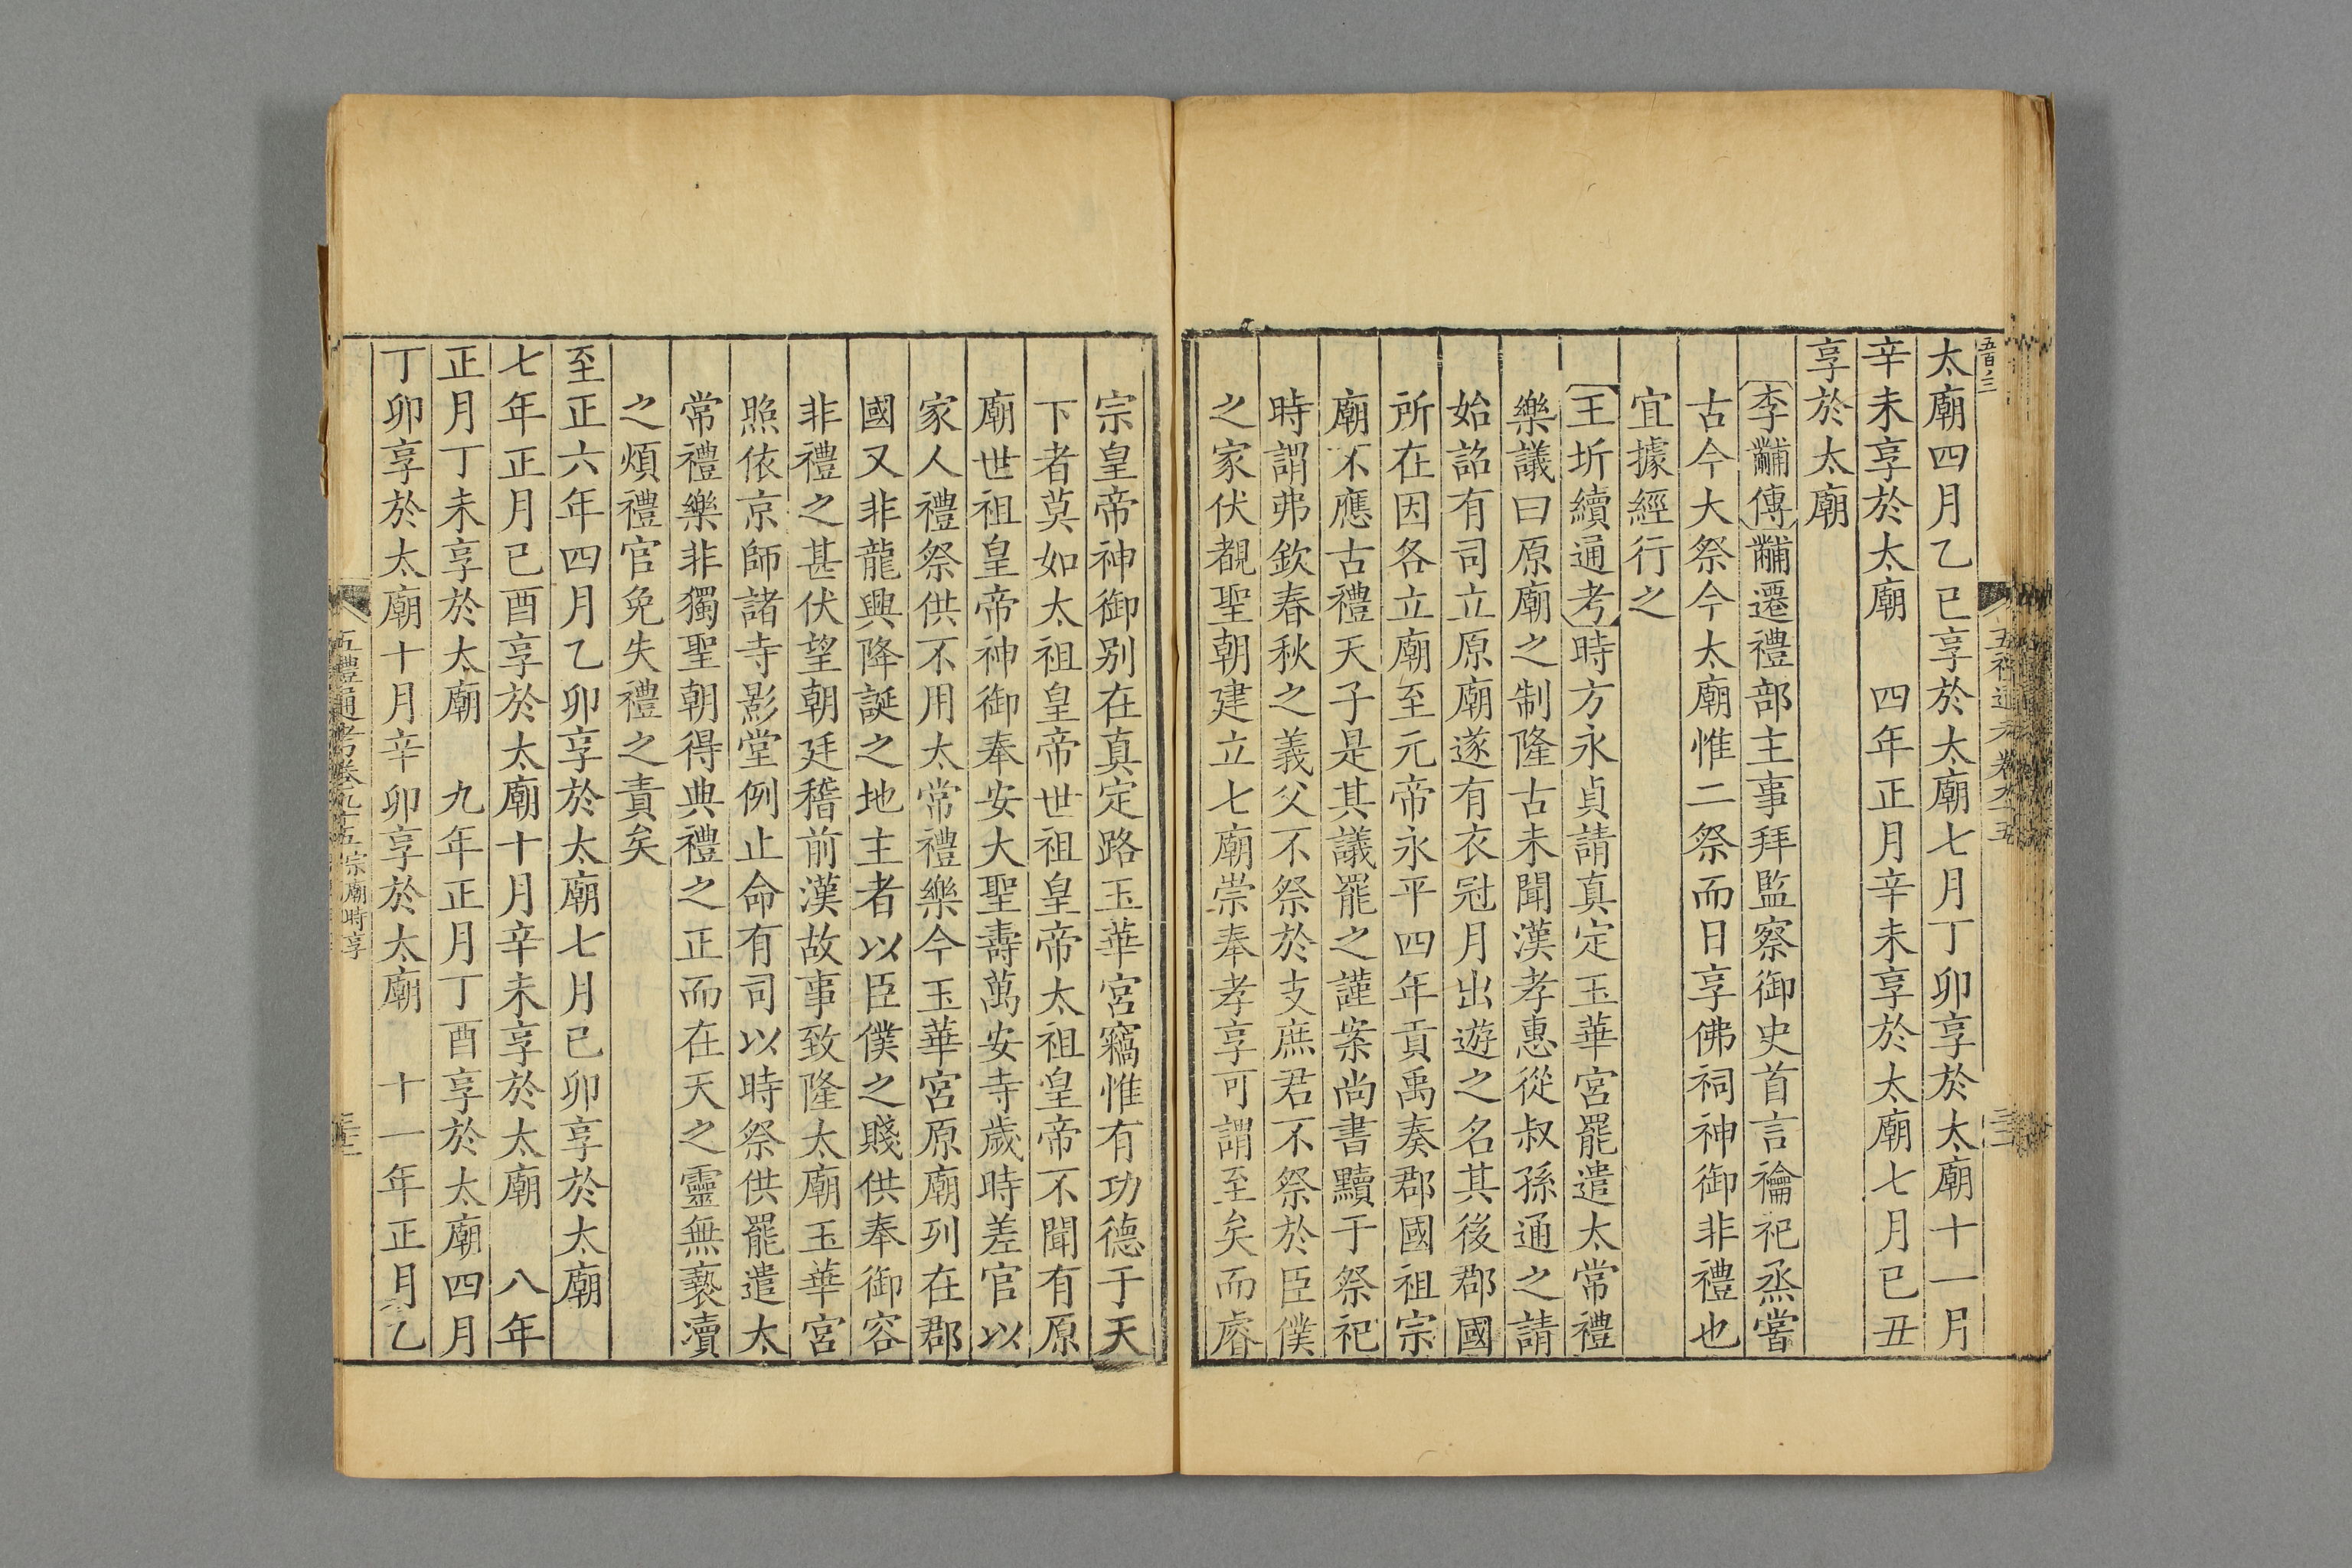 太廟四月乙巳享於太廟七月丁卯享於太廟十一月
辛未享於太廟　四年正月辛未享於太廟七月已丑
享於太廟
李黼傳黼遷禮部主事拜監察御史首言禴祀烝嘗
古今大祭今太廟惟二祭而日享佛祠神御非禮也
宜據經行之
王圻續通考時方永貞請真定玉華宮罷遣太常禮
樂議曰原廟之制隆古未聞漢孝惠從叔孫通之請
始詔有司立原廟遂有衣冠月出遊之名其後郡國
所在因各立廟至元帝永平四年貢禹奏郡國祖宗
廟不應古禮天子是其議罷之謹案尚書黷于祭祀
時謂弗欽春秋之義父不祭於支庶君不祭於臣僕
之家伏覩聖朝建立七廟崇奉孝享可謂至矣而睿
宗皇帝神御别在真定路玉華宮竊惟有功德于天
下者莫如太祖皇帝世祖皇帝太祖皇帝不聞有原
廟世祖皇帝神御奉安大聖壽萬安寺歲時差官以
家人禮祭供不用太常禮樂今玉華宮原廟列在郡
國又非龍興降誕之地主者以臣僕之賤供奉御容
非禮之甚伏望朝廷稽前漢故事致隆太廟玉華宮
照依京師諸寺影堂例止命有司以時祭供罷遣太
常禮樂非獨聖朝得典禮之正而在天之靈無褻瀆
之煩禮官免失禮之責矣
至正六年四月乙卯享於太廟七月已卯享於太廟
七年正月已酉享於太廟十月辛未享於太廟　八年
正月丁未享於太廟　九年正月丁酉享於太廟四月
丁卯享於太廟十月辛卯享於太廟　十一年正月乙
五禮通考卷九十五宗廟時享